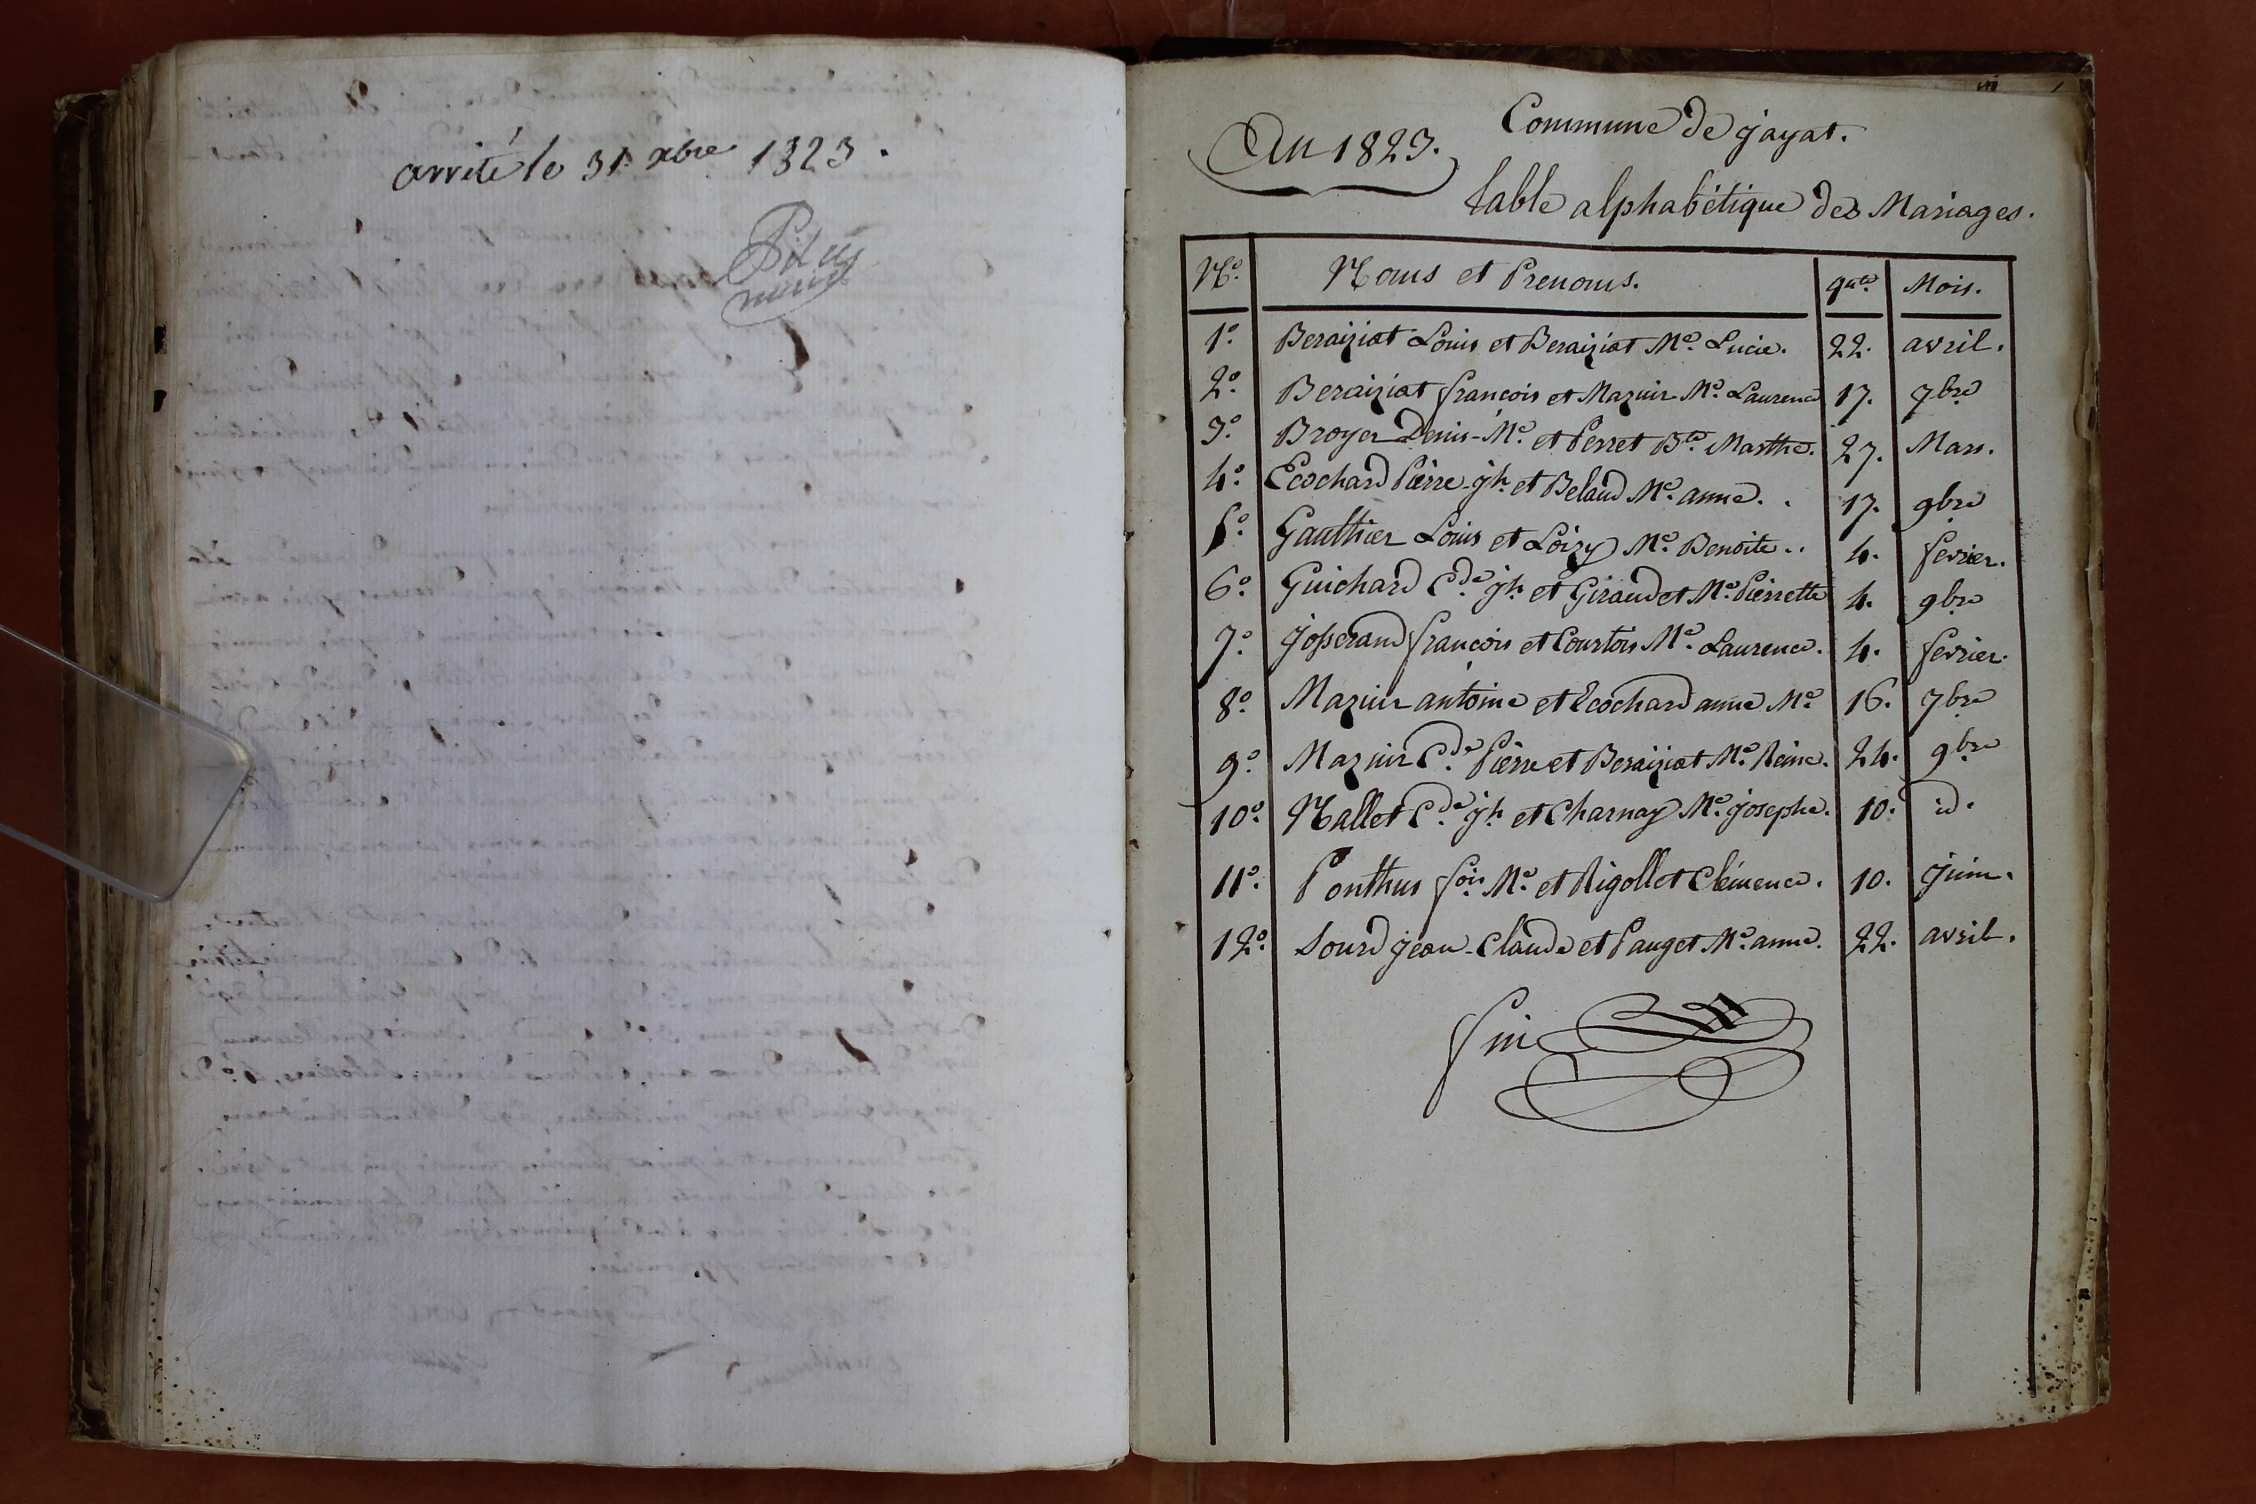 arrité le 31 xbre 1823.
Commune de jayat.
An 1823.
table alphabétique des Mariages.
N°. Noms et Prenoms. qnte. Mois.
1°. Beraiziat Louis et Beraiziat Me. Lucie. 22. avril.
2°. Beraiziat françois et Mazuir Me. Laurence 17. 7bre
3°. Broyer Denis-Me. et Perret Bte. Marthe. 27. Mars.
4°. Ecochard Pierre-jh. et Beland Me. anne. 17. 9bre
5°. Gauthier Louis et Loizy Me. Benoite.. 4. fevrier.
6°. Guichard Cde. jh. et Giraudet Me. Pierrette 4. 9bre
7°. josserand françois et Courtois Me. Laurence. 4. fevrier.
8°. Mazuir antoine et Ecochard anne Me. 16. 7bre
9°. Mazuir Cde. Pierre et Beraiziat Me. Reine. 24. 9bre
10°. Nallet Cde. jh. et Charnay Me. josephe. 10. id.
11°. Ponthus fois. Me. et Rigollet Clémence. 10. juin.
12°. Sourd jean-Claude et Pauget Me. anne. 22. avril.
fin